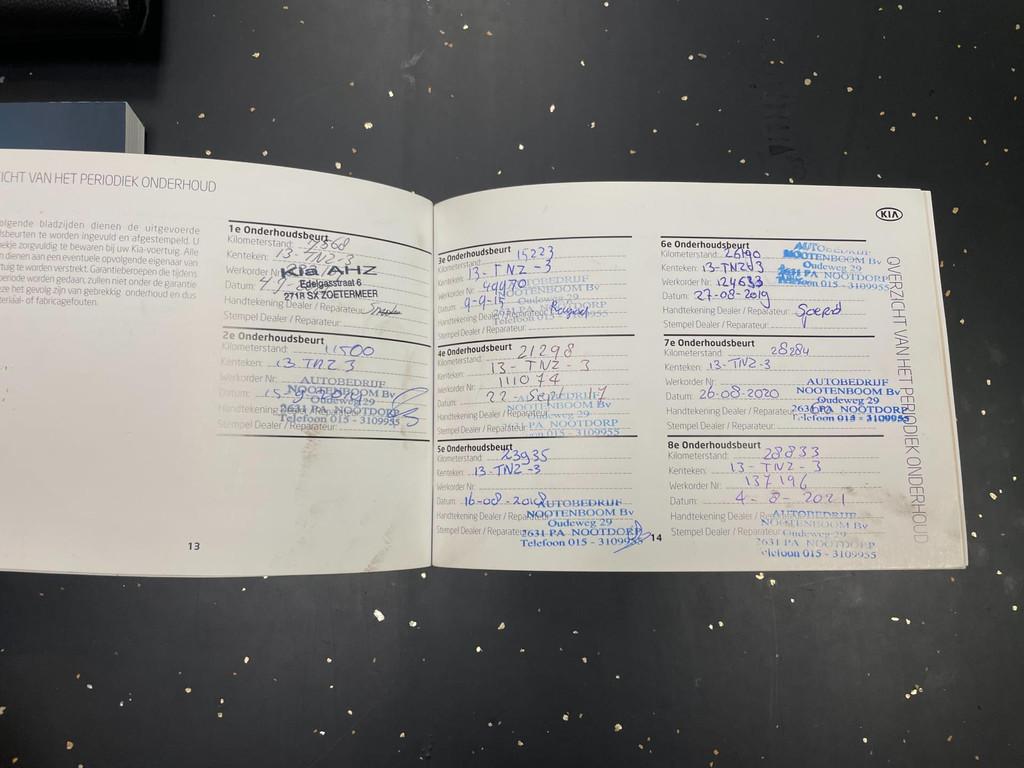 ICHT VAN HET PERIODIEK ONDERHOUD
olgende bladzijden dienen de uitgevoerde
sbeurten te worden ingevuld en afgestempeld. U
ekje zorgvuldig te bewaren bij uw Kia-voertuig. Alle
n dienen aan een eventuele opvolgende eigenaar van
tuig te worden verstrekt. Garantieberoepen die tijdens
periode worden gedaan, zullen niet onder de garantie
ze het gevolg zijn van gebrekkig onderhoud en dus
teriaal- of fabricagefouten.
1e Onderhoudsbeurt
Kilometerstand: 7568
Kenteken: 13-TNZ-3
Werkorder Nr
Kia/AHZ
Edelgasstraat 6
2718 SX ZOETERMEER
Datum:
Handtekening Dealer / Reparateur:
Stempel Dealer / Reparateur:
2e Onderhoudsbeurt
Kilometerstand: 11500
Kenteken: 13 TNZ 3
Werkorder Nr:
Datum:
Handtekening
Stempel Dealer / Reparateur:
AUTOBEDRIJF
NOOTENBOOM Bv
Oudeweg 29
2631 PA NOOTDORP
Telefoon 015 - 3109955
13
3e Onderhoudsbeurt
Kilometerstand: 15223
Kenteken: 13-TNZ-3
Werkorder Nr: 
Datum: 9-9-15
Handtekening Dealer
Stempel Dealer / Reparateur:
AUTOBEDRIJF
NOOTENBOOM Bv
Oudeweg 29
2631 PA NOOTDORP
Telefoon 015 - 3109955
4e Onderhoudsbeurt
Kilometerstand: 21298
Kenteken: 13-TNZ-3
Werkorder Nr: 111074
Datum: 22 - Sept 17
Handtekening Dealer / Reparateur:
Stempel Dealer / Reparateur:
AUTOBEDRIJF
NOOTENBOOM Bv
Oudeweg 29
2631 PA NOOTDORP
Telefoon 015 - 3109955
5e Onderhoudsbeurt
Kilometerstand: 23935
Kenteken: 13-TNZ-3
Werkorder Nr:
Datum: 16-08-2018
Handtekening Dealer / Reparateur
Stempel Dealer / Reparateur
AUTOBEDRIJF
NOOTENBOOM Bv
Oudeweg 29
2631 PA NOOTDORP
Telefoon 015 - 3109955
14
KIA
6e Onderhoudsbeurt
Kilometerstand: 26190
Kenteken: 13-TNZ-3
Werkorder Nr: 124633
Datum: 27-08-2019
Handtekening Dealer / Reparateur:
Stempel Dealer / Reparateur:
AUTOBEDRIJF
NOOTENBOOM Bv
Oudeweg 29
2631 PA NOOTDORP
Telefoon 015 - 3109955
7e Onderhoudsbeurt
Kilometerstand: 28284
Kenteken: 13-TNZ-3
Werkorder Nr:
Datum: 26-08-2020
Handtekening Dealer / Reparateur
Stempel Dealer / Reparateur:
AUTOBEDRIJF
NOOTENBOOM Bv
Oudeweg 29
2631 PA NOOTDORP
Telefoon 015 - 3109955
8e Onderhoudsbeurt
Kilometerstand: 28833
Kenteken: 13-TNZ-3
Werkorder Nr: 137196
Datum: 4-8-2021
Handtekening Dealer
Stempel Dealer / Reparateur
AUTOBEDRIJF
NOOTENBOOM Bv
Oudeweg 29
2631 PA NOOTDORP
Telefoon 015 - 3109955
OVERZICHT VAN HET PERIODIEK ONDERHOUD